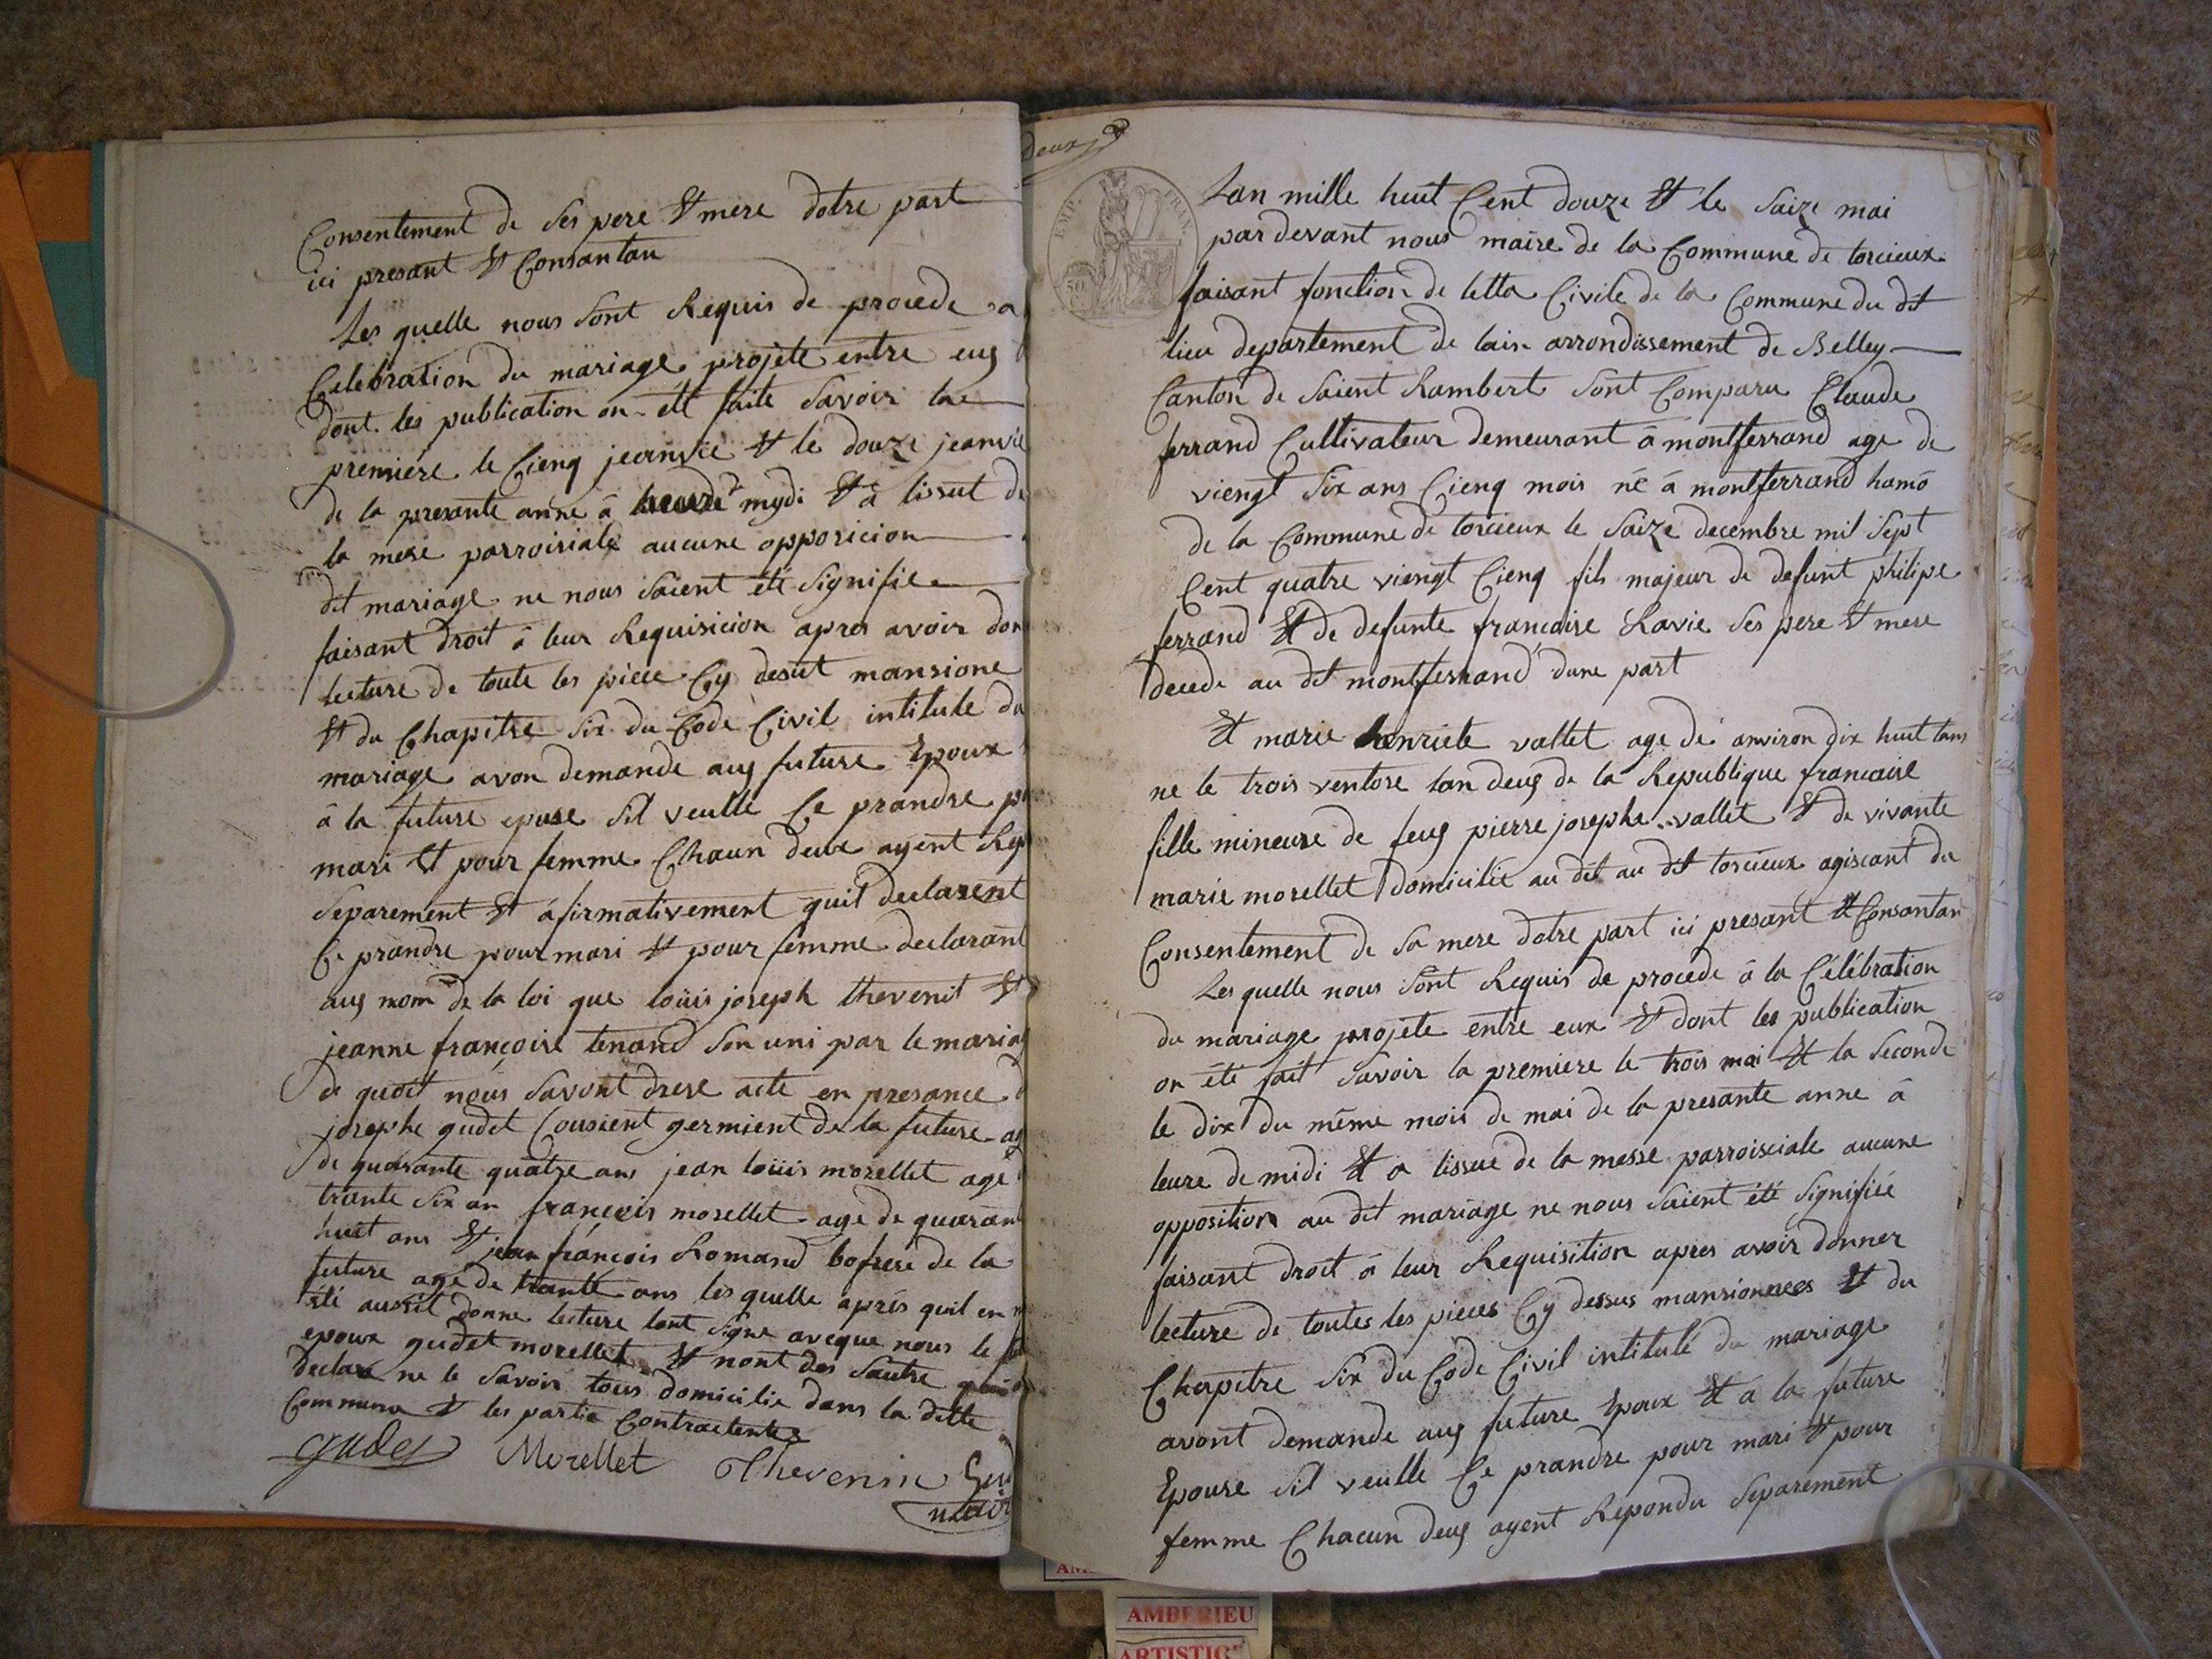 Consentement de ses pere et mere dotre part
ici presant et Consantan
Les quelle nous sont Requis de procede a
Celebration du mariage projete entre eus
dont les publication on été faite savoir la
premiére le Cienq jeanvié et le douze jeanvié
de la presante anné á mydi et á lissut de
la mese parroisiale aucune opposicion
dit mariage ne nous saient été signifie
faisant droit á leur Requisicion apres avoir don
lecture de toute les piece Cy desut mansione
et du Chapitre six du Code Civil intitule du
mariage avon demande aus future Epoux
á la future epuse sil veulle Ce prandre p
mari et pour femme Chaun deux ayent Rep
Separement et áfirmativement quil declarent
Ce prandre pour mari et pour femme declarant
aus nom de la loi que loüis joseph thevenit et
jeanne françoise tenand son uni par le mariag
de quoit nous savont drese acte en presance d
josephe gudet Cousient germient de la future ag
de quarante quatre ans jean loüis morellet age
trante six an françois morellet age de quaran
huit ans et jean françois Romand bofrere de la
future age de trante ans les quelle aprés quil en
été aussit donne lecture lont signe avecque nous le
epoux gudet morellet et nont des sautre
declare ne le savoir tous domicilie dans la ditte
Commune et les partie Contractente
gudet Morellet Thevenin
deux
EMP. FRAN.
50 C.
Lan mille huit Cent douze et le saize mai
par devant nous maire de la Commune de torcieux
faisant fonction de letta Civile de la Commune du dit
lieu departement de lain arrondissement de Belley
Canton de saient Rambert sont Comparu Claude
ferrand Cultivateur demeurant á montferrand age de
viengt six ans Cienq mois né á montferrand hamó
de la Commune de torcieux le saize decembre mil sept
Cent quatre viengt Cienq fils majeur de defunt philipe
ferrand et de defunte francaise Ravie ses pere et mere
decede au dit montferrand dune part
Et marie henriete vallet age de anviron dix huit tans
ne le trois ventose lan deus de la Republique francaise
fille mineure de feus pierre josephe vallet et de vivante
marie morellet domicilié au dit au dit torcieux agiscant du
Consentement de sa mere dotre part ici presant et Consantan
Les quelle nous sont Requis de procede á la Célébration
du mariage projete entre eux et dont les publication
on été fait savoir la premiere le trois mai et la seconde
le dix du même mois de mai de la presante anne á
leure de midi et a lissue de la messe parroisciale aucune
opposition au dit mariage ne nous saient été signifiée
faisant droit á leur Requisition apres avoir donner
lecture de toutes les pieces Cy dessus mansionnees et du
Chapitre six du Code Civil intitulé du mariage
avont demande aus future Epoux et a la future
Epouse sil veulle Ce prandre pour mari et pour
femme Chacun deus ayent Repondu Separement
AMBERIEU
ARTISTIC